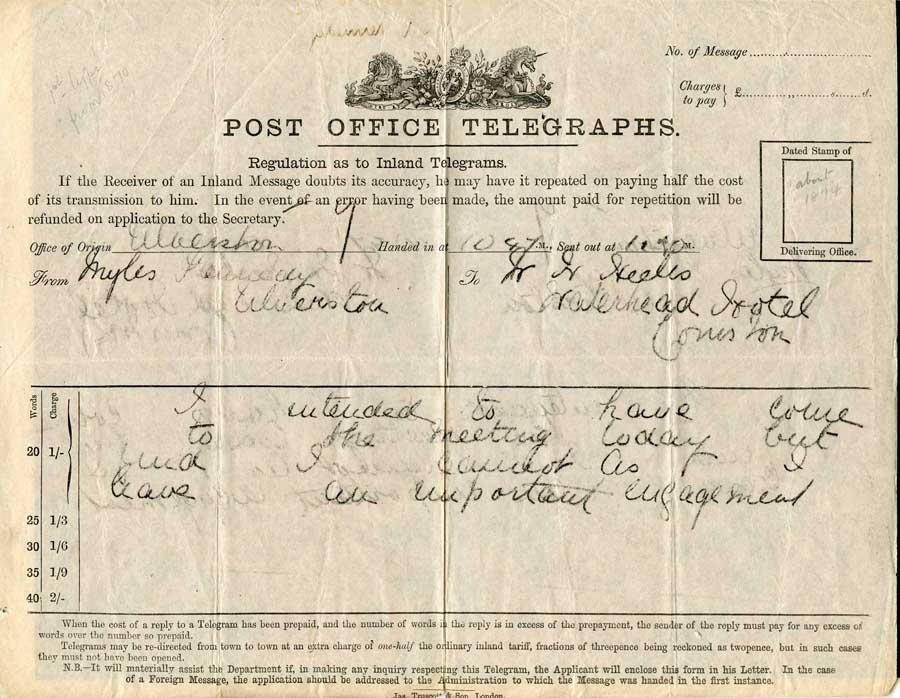 No. of Message
Charges to pay } £ s. d.
POST OFFICE TELEGRAPHS.
Regulation as to Inland Telegrams.
If the Receiver of an Inland Message doubts its accuracy, he may have it repeated on paying half the cost
of its transmission to him. In the event of an error having been made, the amount paid for repetition will be
refunded on application to the Secretary.
Dated Stamp of
about
Delivering Office.
Office of Origin Ulverston Handed in at 10 M., Sent out at M.
From Myles Kennedy To
Ulverston Waterhead Hotel
Coniston
Words Charge
I intended to have come
to the meeting today but
20 1/-
find I cannot as I
have an important engagement
25 1/3
30 1/6
35 1/9
40 2/-
When the cost of a reply to a Telegram has been prepaid, and the number of words in the reply is in excess of the prepayment, the sender of the reply must pay for any excess of
words over the number so prepaid.
Telegrams may be re-directed from town to town at an extra charge of one-half the ordinary inland tariff, fractions of threepence being reckoned as twopence, but in such cases
they must not have been opened.
N.B.—It will materially assist the Department if, in making any inquiry respecting this Telegram, the Applicant will enclose this form in his Letter. In the case
of a Foreign Message, the application should be addressed to the Administration to which the Message was handed in the first instance.
& Son, London.